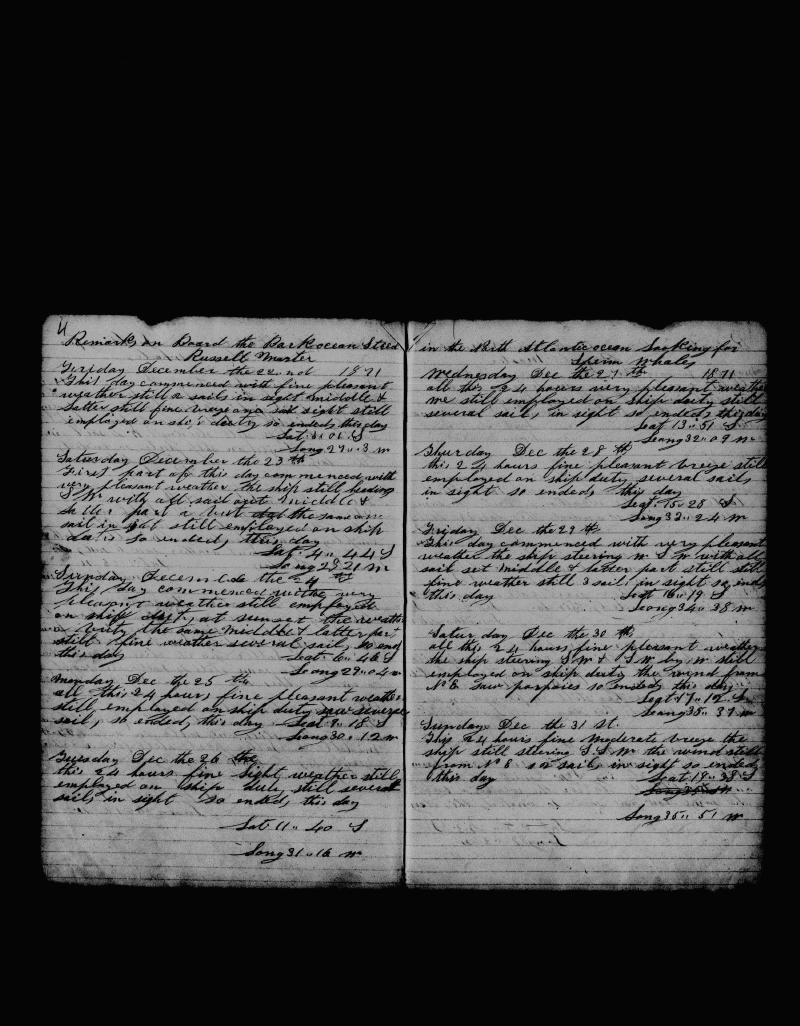 4
Remarks on Board the Bark ocean Steed
Russell Master
Friday December the 22. nd 1871
This day commenced with fine pleasant
weather still 2 sails in sight middle &
latter still fine breeze one sail sight still
employed on ship duty so endeds this day
Lat 1 " 01 S
Long 27 " 3 W
Satesday December the 23 th
First part of this day commenced with
very pleasant weather the ship still heading
S W with all sail out middle &
latter part a but the same one
sail in still employed on ship
duty so endeds this day
Lat " 4 " 44 S
Long 28 21 W
Sunday December the 24 th
This day commenced with very
pleasant weather still employed
on ship duty at sunset the weather
the same middle & latter part
still fine weather several sails so ends
this day Seat 6 " 46 S
Seong 29 " 04 W
Monday Dec the 25 th
all this 24 hours fine pleasant weather
still employed on ship duty saw several
sails so endeds this day Seat 9 " 18 S
Seong 30 " 12 W
Tuesday Dec the 26 the
this 24 hours fine light weather still
employed on ship duty still several
sails in sight so ended this day
Lat 11 " 40 S
Song 31 " 16 W
in the North Atlantic ocean Looking for
Sperm Whales
Wednesday Dec the 27 th 1871
all this 24 hours very pleasant weather
we still employed on ship duty still
several sails in sight so endeds this day
Seat 13 " 51 S
Seong 32 " 09 W
Thursday Dec the 28 th
this 24 hours fine pleasant breeze still
employed on ship duty several sails
in sight so endeds this day
Seat 15 " 28 S
Song 33 " 24 W
Friday Dec the 29 th
This day commenced with very pleasant
weather the ship steering W S W with all
sail set middle & latter part still still
fine weather still 3 sails in sight so ends
this day Seat 16 " 19 S
Seong 34 " 38 W
Satur day Dec the 30 th
all this 24 hours fine pleasant weather
the ship steering S W & S W by W still
employed on ship duty the wind from
N E saw porpoies so endeds this day
Seat 17 " 12 S
Seong 35 " 37 W
Sunday Dec the 31 st.
This 24 hours fine moderate breeze the
ship still steering S. S W the wind still
from N E on sails in sight so endeds
this day Seat 19 " 38 S
Song 35 " 51 W